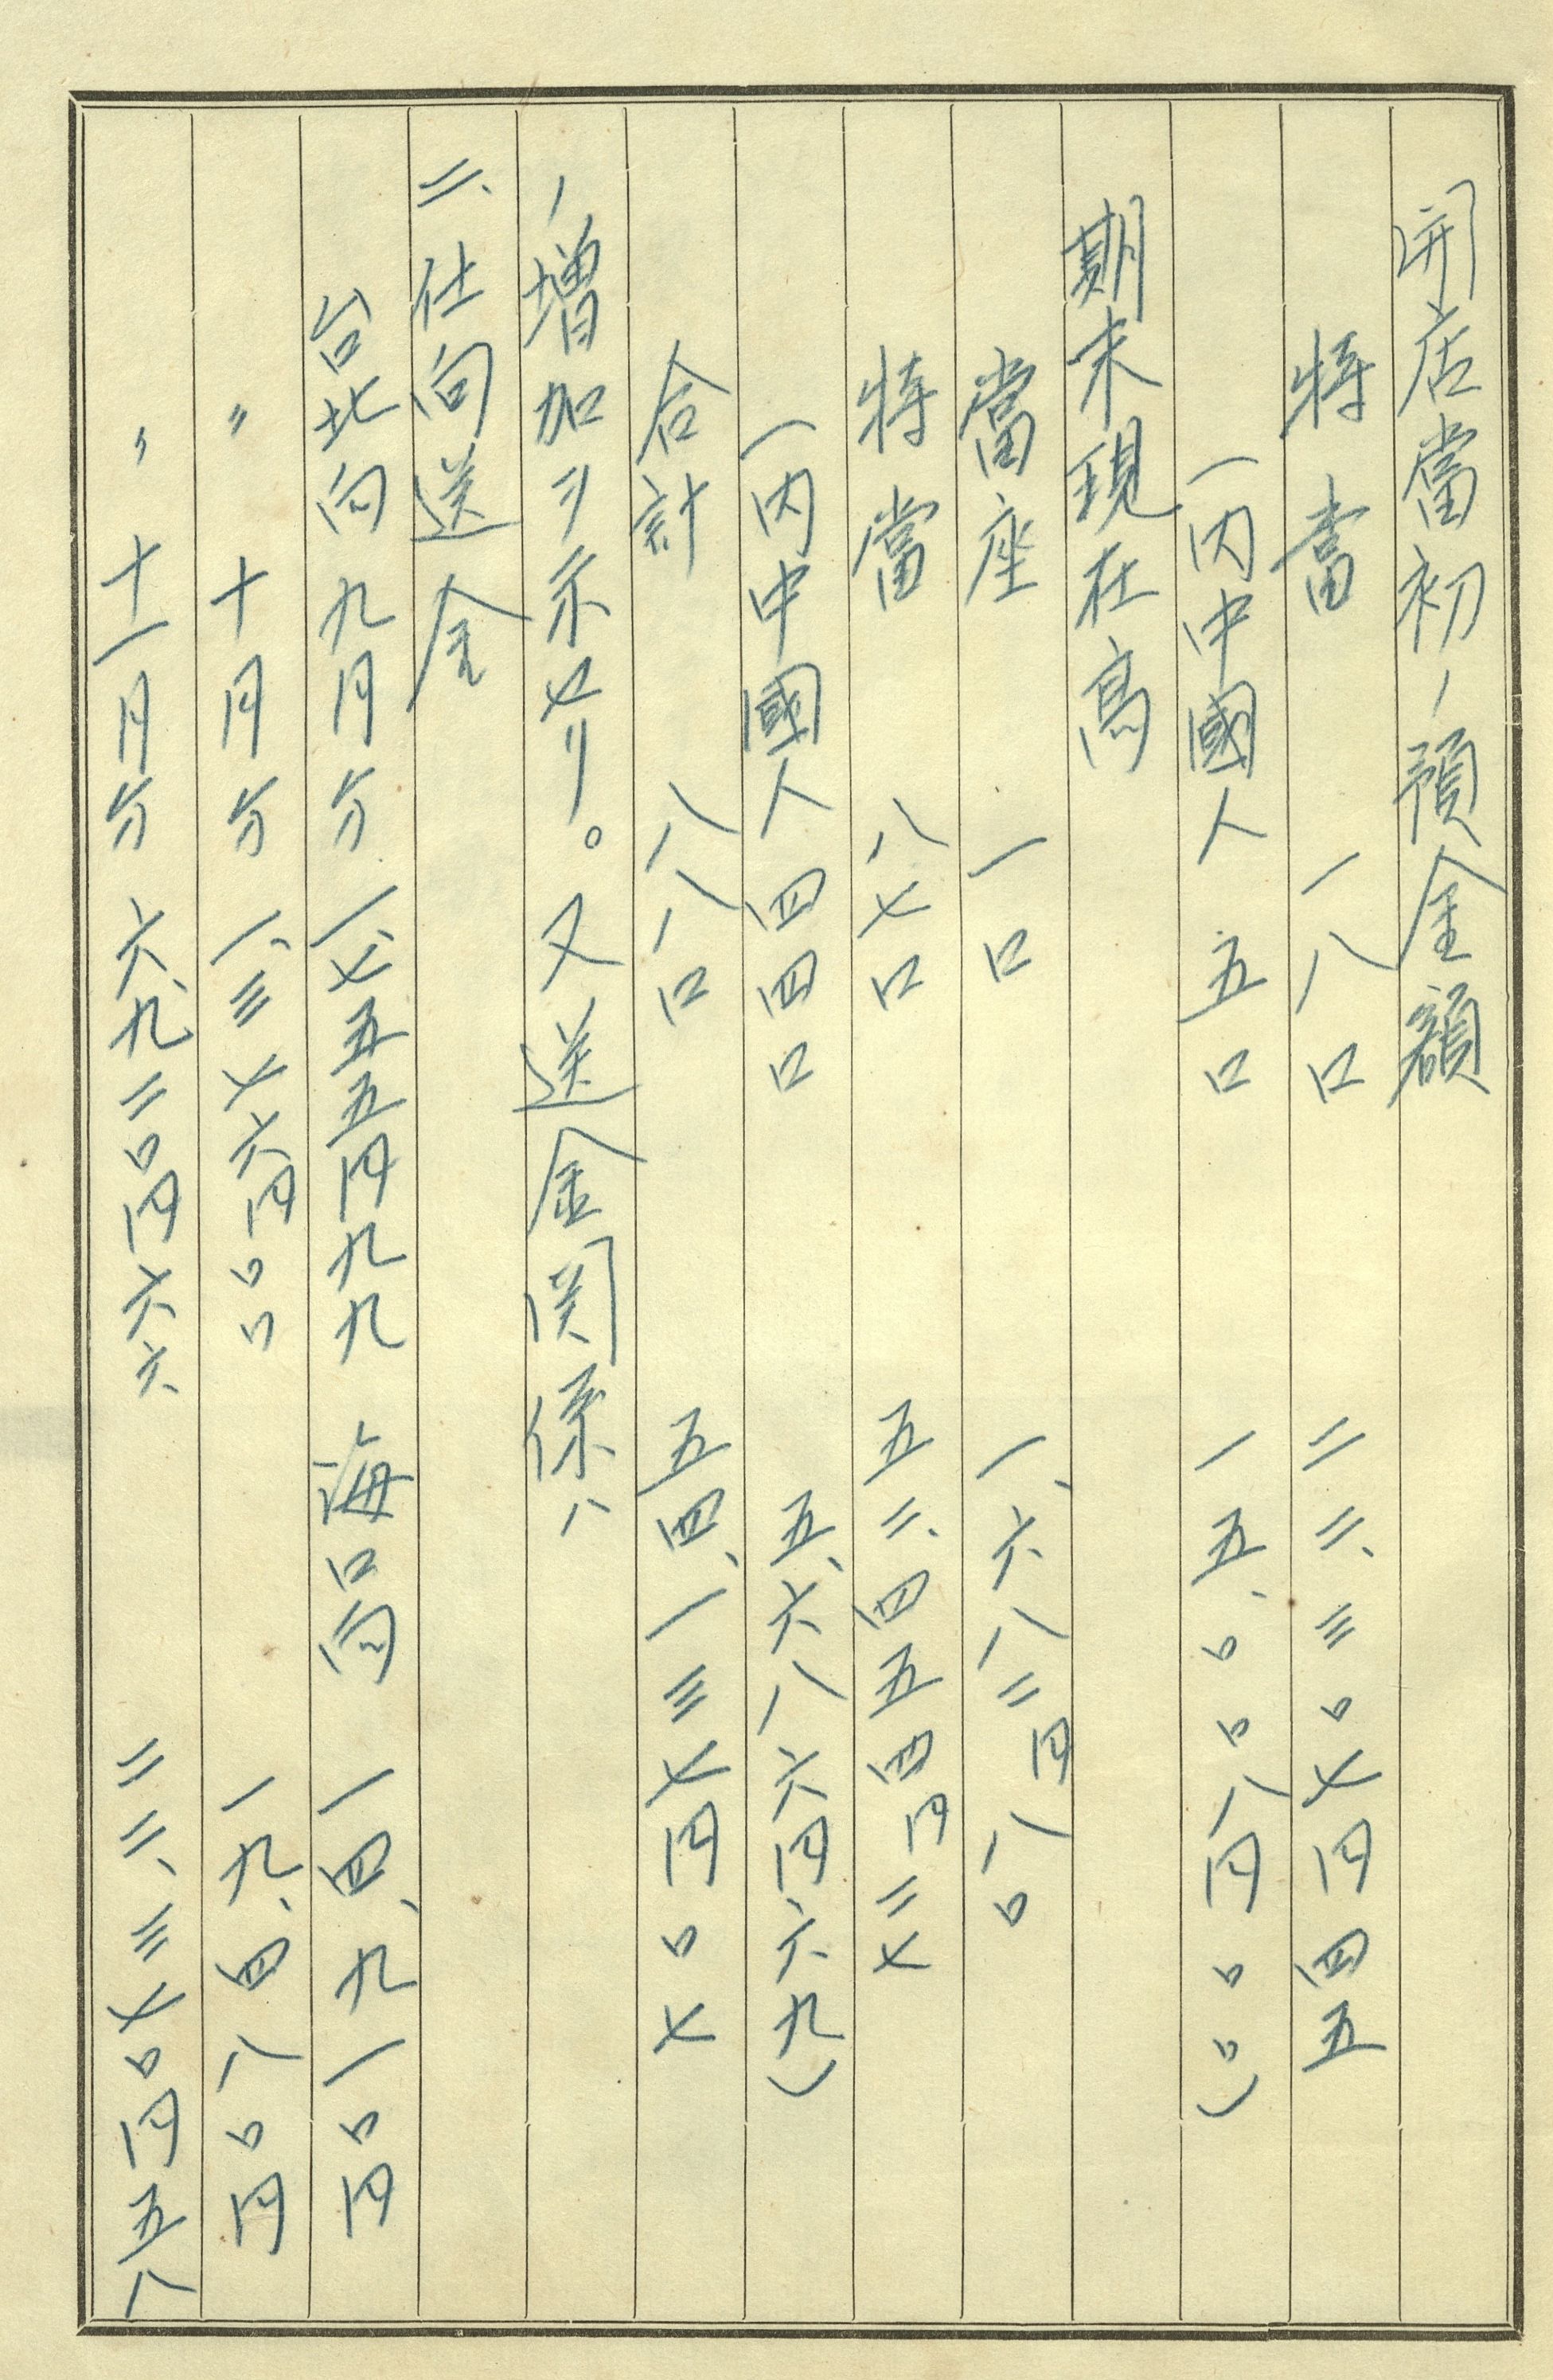 開店當初ノ預金額
特當 一八口 二二、三〇七円四五
(内中國人 五口 一五、〇〇八円〇〇)
期末現在高
當座 一口 一、六八二円八〇
特當 八七口 五二、四五四円二七
(内中國人 四四口 五、六八六円六九)
合計 八八口 五四、一三七円〇七
ノ増加ヲ示セリ。又送金関係ハ
二、仕向送金
台北向 九月分 一、七五五円九九 海口向 一四、九一〇円
〃 十月分 一、三七六円〇〇 一九、四八〇円
〃 十一月分 六、九二〇円六六 二二、三七〇円五八